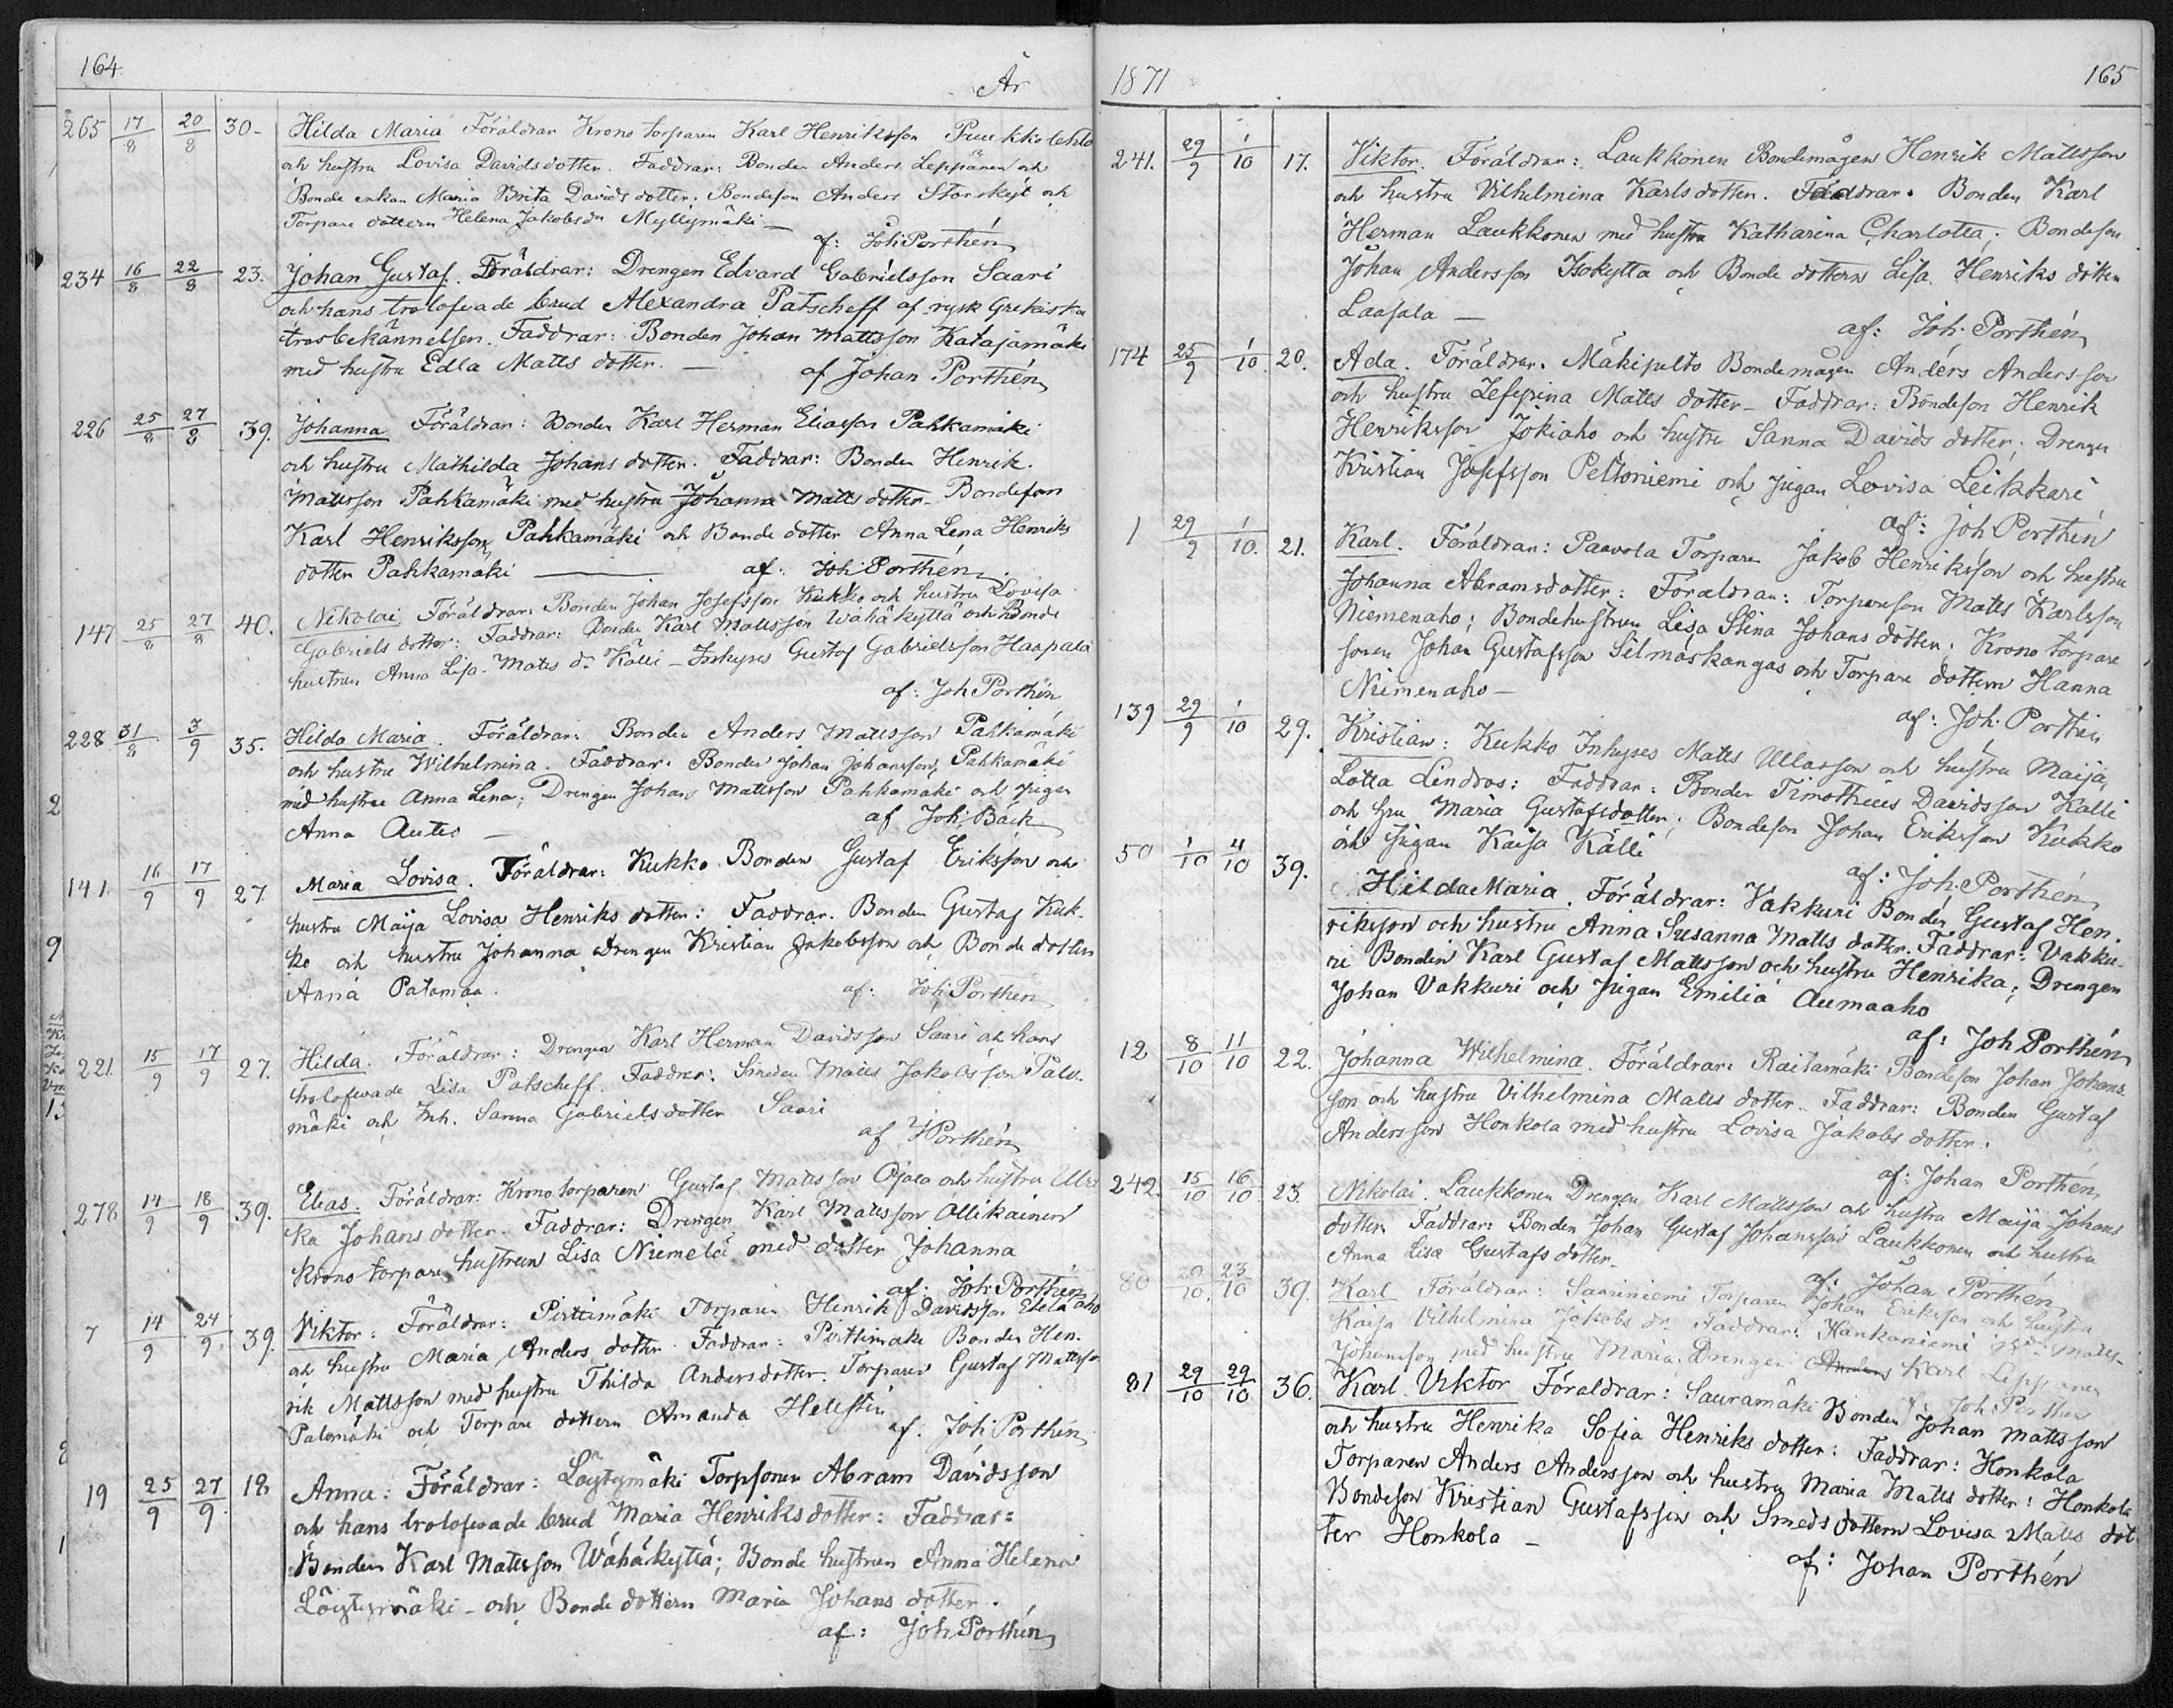 164
År
265 17/8 20/8 30- Hilda Maria Föräldrar Krono torparen Karl Henriksson Puukkolehto
och hustru Lovisa Davidsdotter. Faddrar: Bonden Anders Leppänen och
Bonde enkan Maria Brita Davids dotter; Bondeson Anders Storskyt och
Torpare dottern Helena Jakobsdr Myllymäki —
af: Joh: Porthén
234 16/8 22/8 23. Johan Gustaf. Föräldrar: Drengen Edvard Gabrielsson Saari
och hans trolofvade brud Alexandra Patscheff af rysk Grekiska
trosbekännelsen. Faddrar: Bonden Johan Mattsson Katajamäki
med hustru Edla Matts dotter. —
af Johan Porthén
226 25/8 27/8 39. Johanna Föräldrar: Bonden Karl Herman Eliasson Pahkamäki
och hustru Mathilda Johans dotter. Faddrar: Bonden Henrik
Mattsson Pahkamäki med hustru Johanna Matts dotter - Bondeson
Karl Henriksson Pahkamäki och Bonde dotter Anna Lena Henriks
dotter Pahkamäki — af: Joh: Porthén
147 25/8 27/8 40. Nikolai Föräldrar: Bonden Johan Josefsson Kukko och hustru Lovisa
Gabriels dotter: Faddrar: Bonden Karl Mattsson Wähäkyttä och Bonde
hustrun Anna Lisa Matts dr Källi - Inhyses Gustaf Gabrielsson Haapala
af: Joh Porthén
228 31/8 3/9 35. Hilda Maria. Föräldrar: Bonden Anders Mattsson Pahkamäki
och hustru Wilhelmina. Faddrar: Bonden Johan Johansson Pahkamäki
med hustru Anna Lena; Drengen Johan Mattsson Pahkamäki och pigan
Anna Autio — af Joh: Back
141. 16/9 17/9 27. Maria Lovisa. Föräldrar: Kukko Bonden Gustaf Eriksson och
hustru Maija Lovisa Henriks dotter: Faddrar. Bonden Gustaf Kuk-
ko och hustru Johanna Drengen Kristian Jakobsson och Bonde dottern
Anna Patamaa. af: Joh: Porthén
221. 15/9 17/9 27. Hilda. Föräldrar: Drengen Karl Herman Davidsson Saari och hans
trolofvade Lisa Patscheff. Faddrar: Smeden Matts Jakobsson Palo-
mäki och Inh. Sanna Gabrielsdotter Saari
af JPorthén
278 14/9 18/9 39. Elias: Föräldrar: Krono torparen Gustaf Mattsson Ojala och hustru Ulri
ka Johans dotter. Faddrar: Drengen Karl Mattsson Ollikainen
krono torpare hustrun Lisa Niemelä med dotter Johanna
af: Joh: Porthén
7 14/9 24/9. 39. Viktor: Föräldrar: Pirttimäki Torparen Henrik Davidsson Eteläaho
och hustru Maria Anders dotter Faddrar: Pirttimäki Bonden Hen-
rik Mattsson med hustru Thilda Andersdotter. Torparen Gustaf Mattsso
Palomäki och Torpare dottern Amanda Hellstén
af: Joh: Porthén
19 25/9 27/9. 18. Anna: Föräldrar: Löytymäki Torpsonen Abram Davidsson
och hans trolofvade brud Maria Henriksdotter: Faddrar:
Bonden Karl Mattsson Wähäkyttä; Bonde hustrun Anna Helena
Löytymäki - och Bonde dottern Maria Johans dotter.
af: Joh Porthén
1871
165
241. 29/9 1/10 17. Viktor. Föräldrar: Laukkonen Bondemågen Henrik Mattsson
och hustru Vilhelmina Karlsdotter. Faddrar. Bonden Karl
Herman Laukkonen med hustru Katharina Charlotta; Bondeson
Johan Andersson Isokyttä och Bonde dottern Lisa Henriks dotter
Laasala —
af: Joh: Porthén
174 25/9 1/10. 20. Ada. Föräldrar. Mäkipelto Bondemågen Anders Andersson
och hustru Sefesina Matts dotter - Faddrar: Bondeson Henrik
Henriksson Jokiaho och hustru Sanna Davids dotter; Drengen
Kristian Josefsson Peltoniemi och pigan Lovisa Leikkari
af: Joh Porthén
1 29/9 1/10. 21. Karl. Föräldrar: Paavola Torparen Jakob Henriksson och hustru
Johanna Abramsdotter: Föräldrar: Torpareson Matts Karlsson
Niemenaho; Bondehustrun Lisa Stina Johans dotter; Krono torpare
sonen Johan Gustafsson Silmäskangas och Torpare dottern Hanna
Niemenaho —
af: Joh: Porthén
139 29/9 1/10 29. Kristian: Kukko Inhyses Matts Ullasson och hustru Maija
Lotta Lindros: Faddrar: Bonden Timotheus Davidsson Källi
och hru Maria Gustafsdotter; Bondeson Johan Eriksson Kukko
och Pigan Kaisa Källi
af: Joh: Porthén
50 1/10 4/10 39. Hilda Maria. Föräldrar: Vakkuri Bonden Gustaf Hen-
riksson och hustru Anna Susanna Matts dotter. Faddrar: Vakku-
ri Bonden Karl Gustaf Mattsson och hustru Henrika; Drengen
Johan Vakkuri och Pigan Emilia Aumaaho
af: Joh Porthén
12 8/10 11/10 22. Johanna Wilhelmina. Föräldrar: Raitamäki Bondeson Johan Johans-
son och hustru Vilhelmina Matts dotter - Faddrar: Bonden Gustaf
Andersson Honkola med hustru Lovisa Jakobs dotter.
af: Johan Porthén
242. 15/10 16/10 23. Nikolai. Laukkonen Drengen Karl Mattsson och hustru Maija Johans
dotter Faddrar: Bonden Johan Gustaf Johansson Laukkonen och hustru
Anna Lisa Gustafs dotter -
af: Johan Porthén
80 20/10. 23/10 39. Karl Föräldrar: Saariniemi Torparen Johan Eriksson och hustru
Kaisa Vilhelmina Jakobs dr Faddrar: Hankaniemi Matts-
Johansson med hustru Maria; Drengen Anders Karl Leppänen
af: Joh: Porthén
81 29/10 29/10 36. Karl Viktor Föräldrar: Sauramäki Bonden Johan Mattsson
och hustru Henrika Sofia Henriks dotter: Faddrar: Honkola
Torparen Anders Andersson och hustru Maria Matts dotter: Honkola
Bondeson Kristian Gustafsson och Smeds dottern Lovisa Matts dot
ter Honkola —
af: Johan Porthén